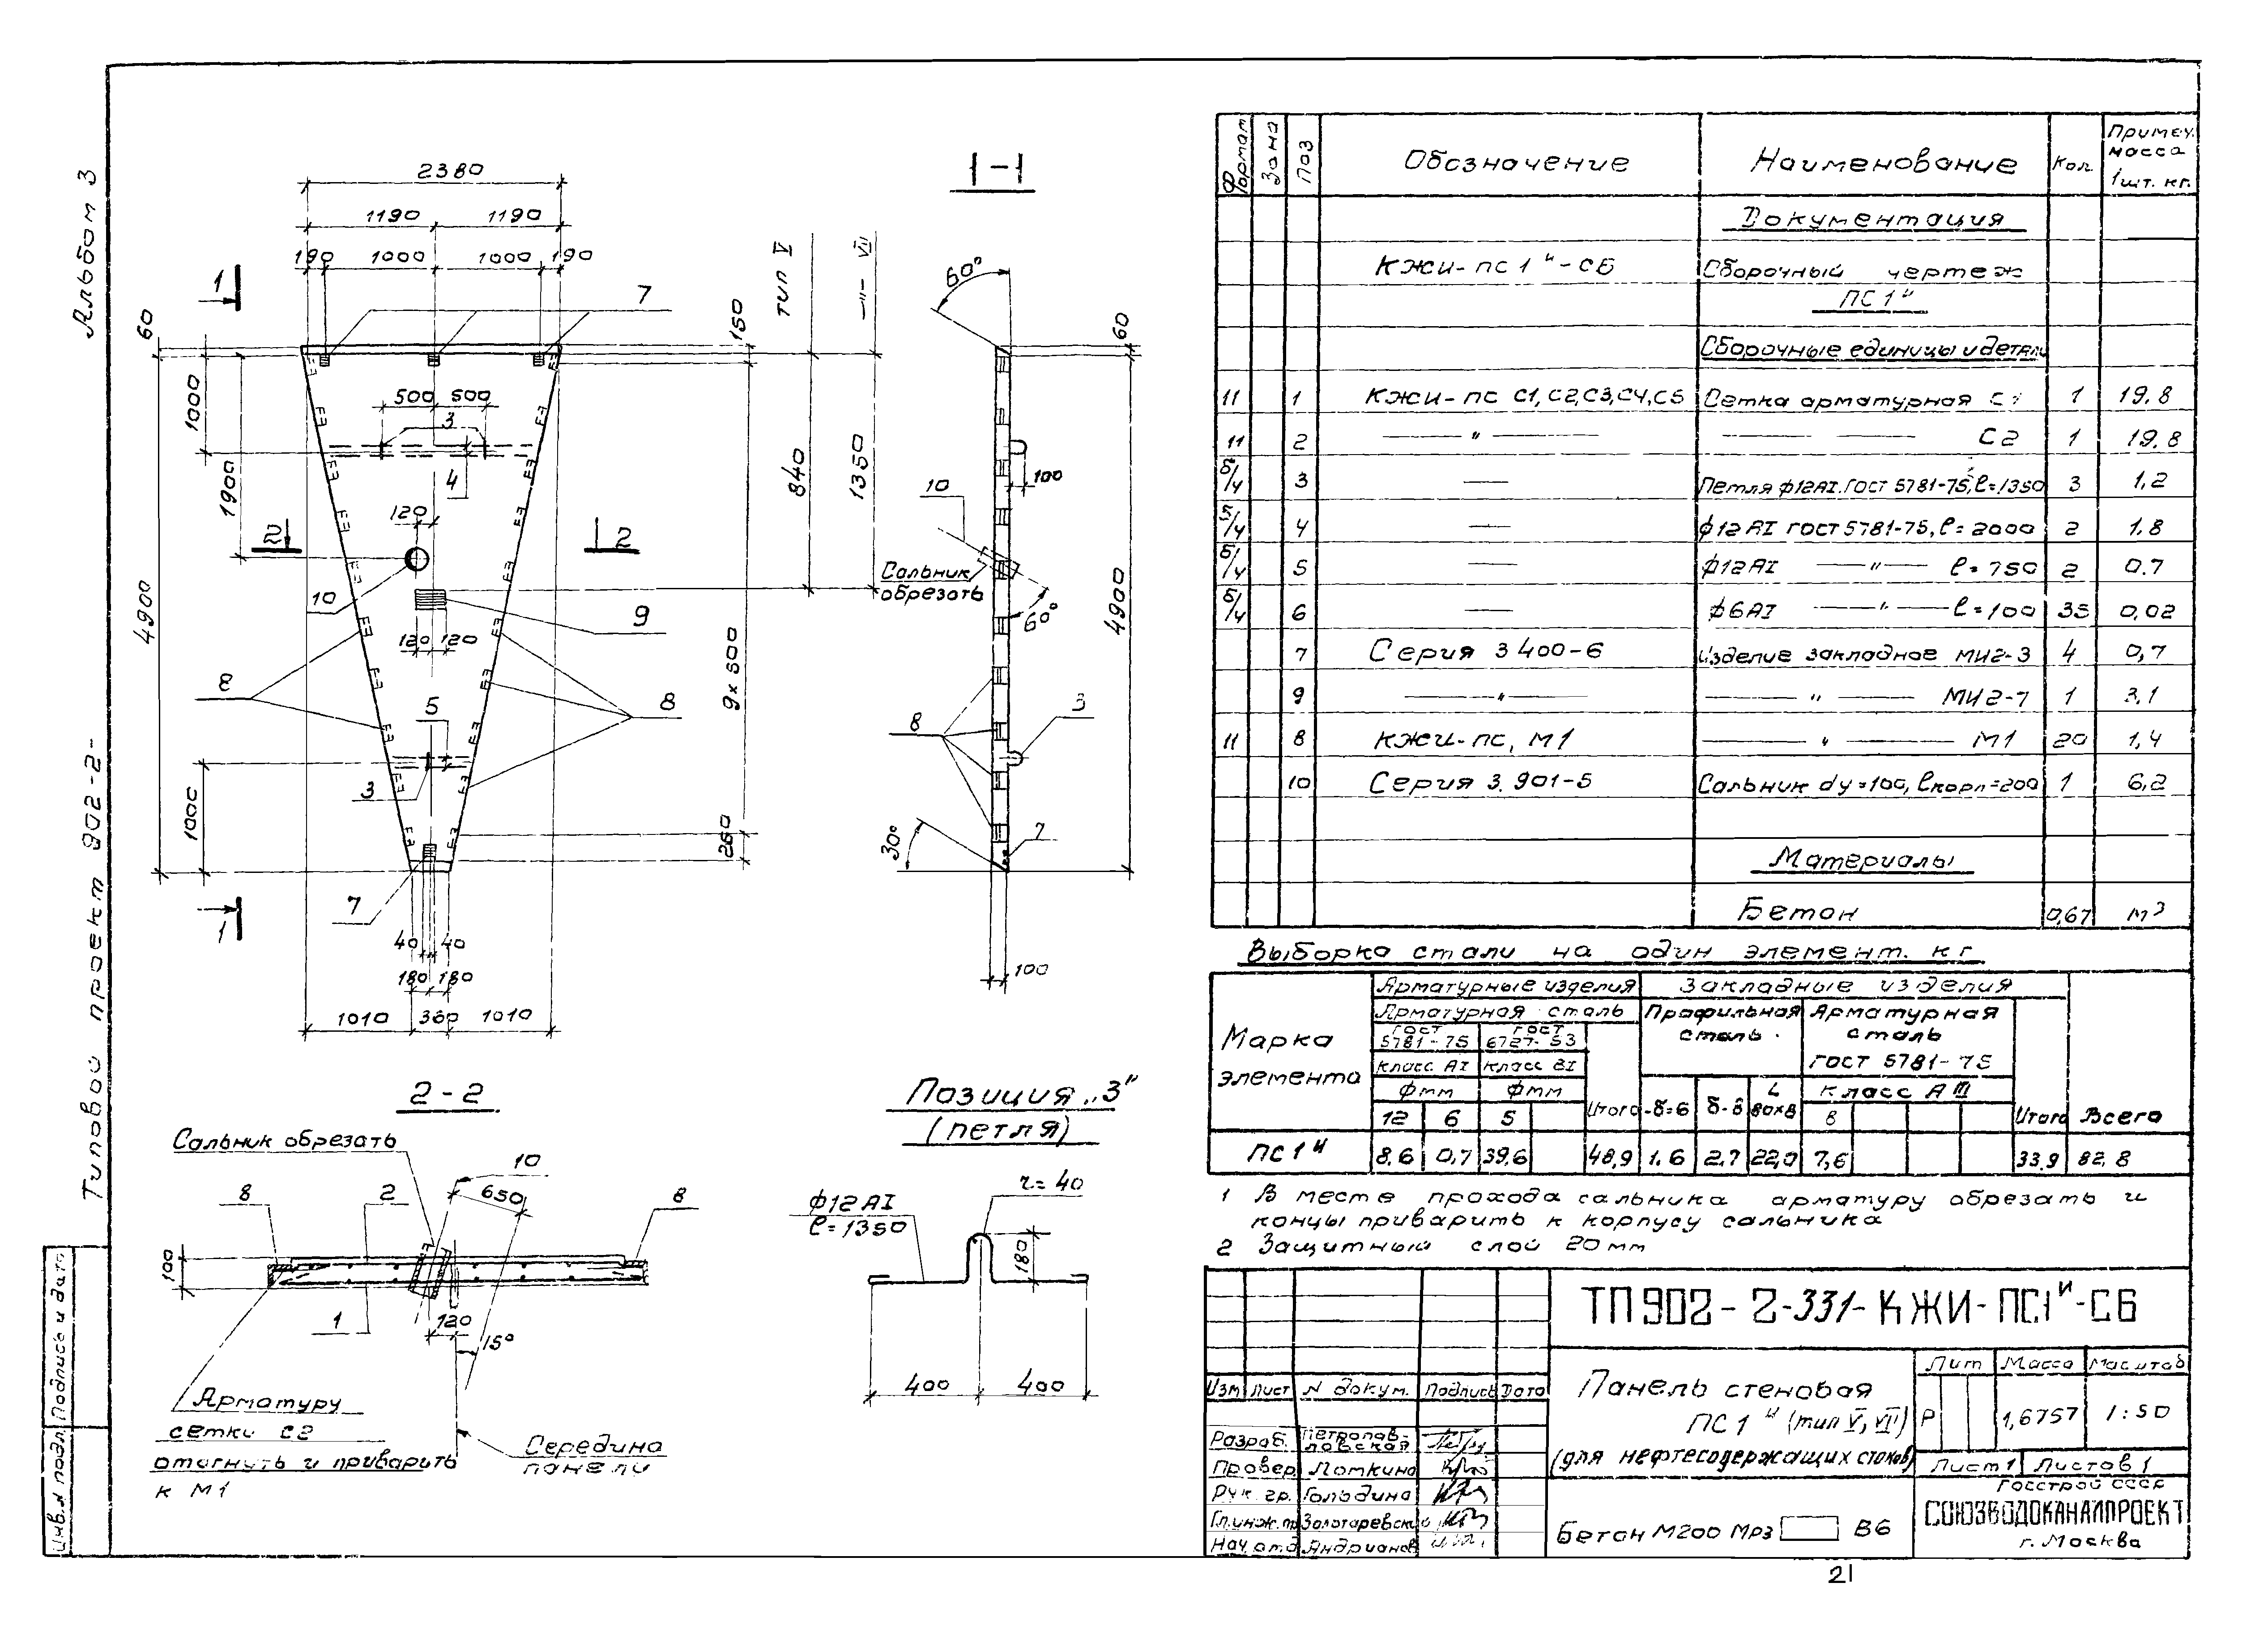 Альбом 3
Типовой проект 902-2-
Инв.№ подл. Подпись и дата
2380
1190 1190
190 1000 1000 190
1
7
60
150
тип V
—"— VII
1000
1900
500 500
3
4
840
1350
120
2 2
10
9
120 120
4900
9×500
8
8
5
3
1000
260
7
1
40 40
180 180
1010 360 1010
1-1
60°
60
100
10
Сальник
обрезать
60°
4900
8
3
30°
7
100
2-2
Сальник обрезать
10
8 2 650 8
100
1
120
15°
Арматуру
сетки С2
отогнуть и приварить
к М1
Середина
панели
Позиция „3"
(петля)
ф12АI
ℓ=1350
r=40
180
400 400
Формат Зона Поз Обозначение Наименование Кол. Примеч. масса 1шт. кг.
Документация
КЖИ-ПС1и-СБ Сборочный чертеж
ПС1и
Сборочные единицы и детали
11 1 КЖИ-ПС С1,С2,С3,С4,С5 Сетка арматурная С1 1 19.8
11 2 —"— — — С2 1 19.8
б/ч 3 — Петля ф12АI.ГОСТ 5781-75,ℓ=1350 3 1,2
б/ч 4 — ф12АI ГОСТ 5781-75, ℓ=2000 2 1.8
б/ч 5 — ф12АI —"— ℓ=750 2 0.7
б/ч 6 — ф6АI —"— ℓ=100 35 0,02
7 Серия 3 400-6 Изделие закладное МИ2-3 4 0,7
9 —"— —"— МИ2-7 1 3,1
11 8 КЖИ-ПС, М1 —"— М1 20 1,4
10 Серия 3. 901-5 Сальник dy=100, ℓкорп=200 1 6,2
Материалы
Бетон 0,67 м3
Выборка стали на один элемент. кг.
Марка элемента Арматурные изделия Закладные изделия
Арматурная сталь Профильная сталь Арматурная сталь
ГОСТ 5781-75 ГОСТ 6727-53 ГОСТ 5781-75
Класс АI Класс ВI Класс А III
Фмм Фмм
12 6 5 Итого -δ=6 δ-8 L 80×8 8 Итого Всего
ПС1и 8,6 0,7 39,6 48,9 1.6 2,7 22,0 7,6 33.9 82,8
1 В месте прохода сальника арматуру обрезать и
концы приварить к корпусу сальника
2 Защитный слой 20 мм
ТП902-2-331-КЖИ-ПС1и-СБ
Изм Лист N докум. Подпись Дата
Разраб. Петропавловская
Провер Лоткина
Рук. гр. Гольдина
Гл.инж.пр Золотаревский
Нач.отд Андрианов
Панель стеновая
ПС1и (тип V, VII)
(для нефтесодержащих стоков)
Лит Масса Масштаб
Р 1,6757 1:50
Лист 1 Листов 1
Бетон М200 Мрз В6
Госстрой СССР
СОЮЗВОДОКАНАЛПРОЕКТ
г. Москва
21